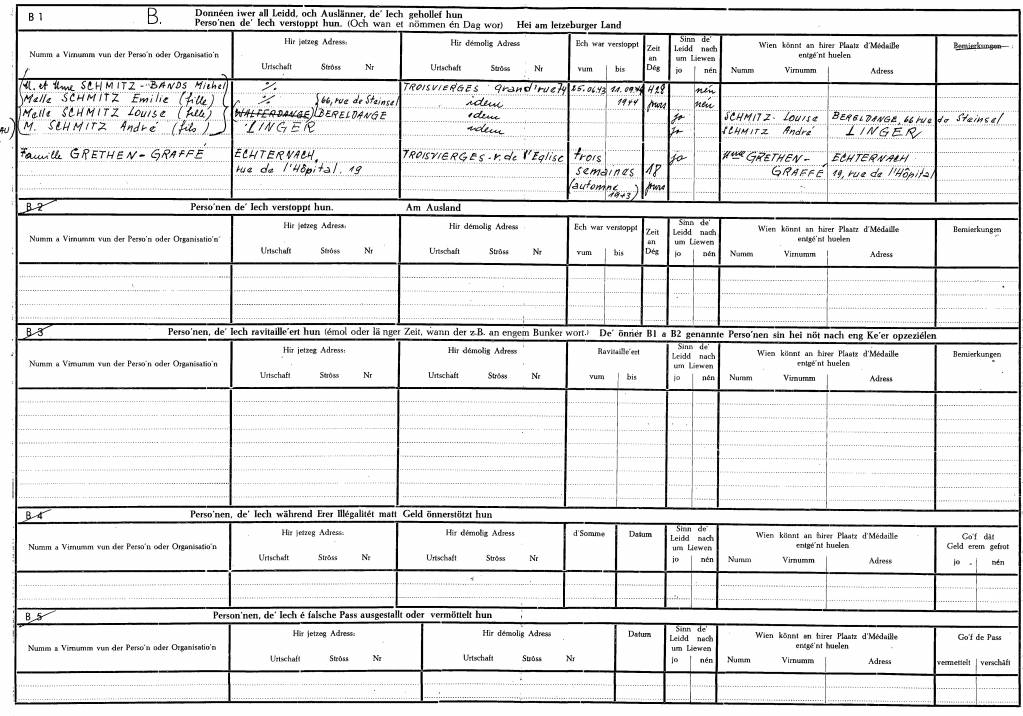 B 1 B. Donnéen iwer all Leidd, och Auslänner, de' Iech gehollef hun
Perso'nen de' Iech verstoppt hun. (Och wan et nömmen én Dag wor) Hei am letzeburger Land
Numm a Virnumm vun der Perso'n oder Organisatio'n Hir jetzeg Adress: Urtschaft Ströss Nr Hir démolig Adress Urtschaft Ströss Nr Ech war verstoppt vum bis Zeit an Dég Sinn de' Leidd nach um Liewen jo nén Wien könnt an hirer Plaatz d'Médaille entgé'nt huelen Numm Virnumm Adress Bemierkungen
M. et Mme SCHMITZ-BANDS Michel °/. TROISVIERGES grand'rue 74 25.06.43 11.09.44 442 nén
Melle SCHMITZ Emilie (fille) °/. idem 1944 jours nén
Melle SCHMITZ Louise (fille) WALFERDANGE 66, rue de Steinsel BERELDANGE idem jo SCHMITZ Louise BERELDANGE, 66 rue de Steinsel
M. SCHMITZ André (fils) LINGER idem jo SCHMITZ André LINGER
Famille GRETHEN-GRAFFÉ ECHTERNACH, TROISVIERGES r. de l'Eglise trois jo Mme GRETHEN- ECHTERNACH
rue de l'Hôpital. 19 semaines 18 GRAFFÉ 19, rue de l'Hôpital
(automne 1943) jours
B 2 Perso'nen de' Iech verstoppt hun. Am Ausland
Numm a Virnumm vun der Perso'n oder Organisatio'n Hir jetzeg Adress: Urtschaft Ströss Nr Hir démolig Adress Urtschaft Ströss Nr Ech war verstoppt vum bis Zeit an Dég Sinn de' Leidd nach um Liewen jo nén Wien könnt an hirer Plaatz d'Médaille entgé'nt huelen Numm Virnumm Adress Bemierkungen
B 3 Perso'nen, de' Iech ravitaille'ert hun (émol oder lä nger Zeit, wann der z.B. an engem Bunker wort.) De' önnér B1 a B2 genannte Perso'nen sin hei nöt nach eng Ke'er opzeziélen
Numm a Virnumm vun der Perso'n oder Organisatio'n Hir jetzeg Adress: Urtschaft Ströss Nr Hir démolig Adress Urtschaft Ströss Nr Ravitaille'ert vum bis Sinn de' Leidd nach um Liewen jo nén Wien könnt an hirer Plaatz d'Médaille entgé'nt huelen Numm Virnumm Adress Bemierkungen
B 4 Perso'nen, de' Iech während Erer Illégalitét matt Geld önnerstötzt hun
Numm a Virnumm vun der Perso'n oder Organisatio'n Hir jetzeg Adress: Urtschaft Ströss Nr Hir démolig Adress Urtschaft Ströss Nr d'Somme Datum Sinn de' Leidd nach um Liewen jo nén Wien könnt an hirer Plaatz d'Médaille entgé'nt huelen Numm Virnumm Adress Go'f dât Geld erem gefrot jo nén
B 5 Person'nen, de' Iech é falsche Pass ausgestallt oder vermöttelt hun
Numm a Virnumm vun der Perso'n oder Organisatio'n Hir jetzeg Adress: Urtschaft Ströss Nr Hir démolig Adress: Urtschaft Ströss Nr Datum Sinn de' Leidd nach um Liewen jo nén Wien könnt an hirer Plaatz d'Médaille entgé'nt huelen Numm Virnumm Adress Go'f de Pass vermettelt verschâft